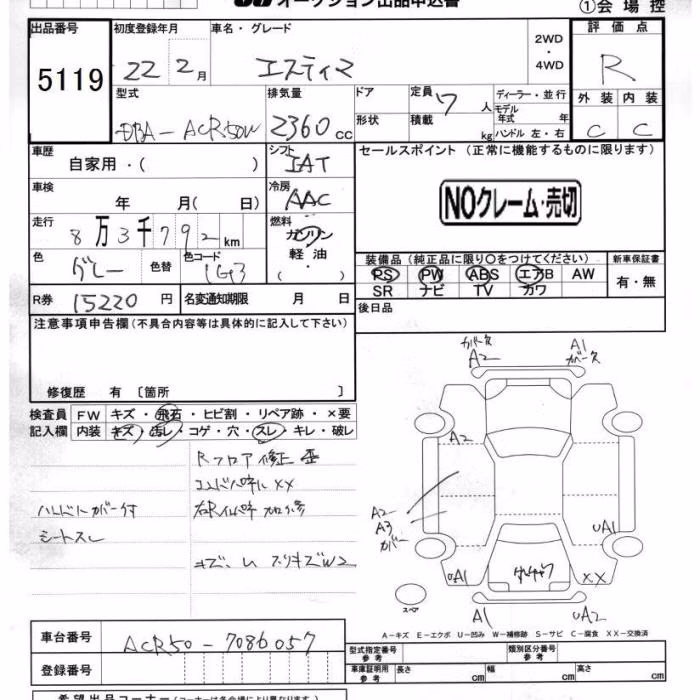 オークション出品申込書
①会場控
出品番号
5119
初度登録年月
22 2月
車名・グレード
エスティマ
2WD
・
4WD
評価点
R
外装 内装
C C
型式
DBA-ACR50W
排気量
2360 cc
ドア
形状
定員 7 人
積載 kg
ディーラー・並行
モデル年式 年
ハンドル 左・右
車歴
自家用・( )
シフト
IAT
セールスポイント (正常に機能するものに限ります)
NOクレーム・売切
車検
年 月( 日)
冷房
AAC
走行
8万3千792km
燃料
ガソリン
軽油
( ・ )
色
グレー
色替
色コード
1G3
装備品 (純正品に限り〇をつけてください)
PS PW ABS エアB AW
SR ナビ TV カワ
新車保証書
有・無
R券 15220 円
名変通知期限 月 日
後日品
注意事項申告欄(不具合内容等は具体的に記入して下さい)
修復歴 有 〔箇所 〕
検査員記入欄
FW キズ・飛石・ヒビ割・リペア跡・×要
内装 キズ・汚レ・コゲ・穴・スレ・キレ・破レ
Rフロア修正
XX
シートスレ
W2
カバー欠
A2
A1
カバー欠
A2
A2
A3
カバー
UA1
UA1
XX
A1
UA2
スペア
A-キズ E-エクボ U-凹み W-補修跡 S-サビ C-腐食 XX-交換済
車台番号
ACR50-7086057
登録番号
型式指定番号
参考
類別区分番号
参考
車庫証明用
参考
長さ cm
幅 cm
高さ cm
希望出品コーナー(コーナーは各会場により異なります)